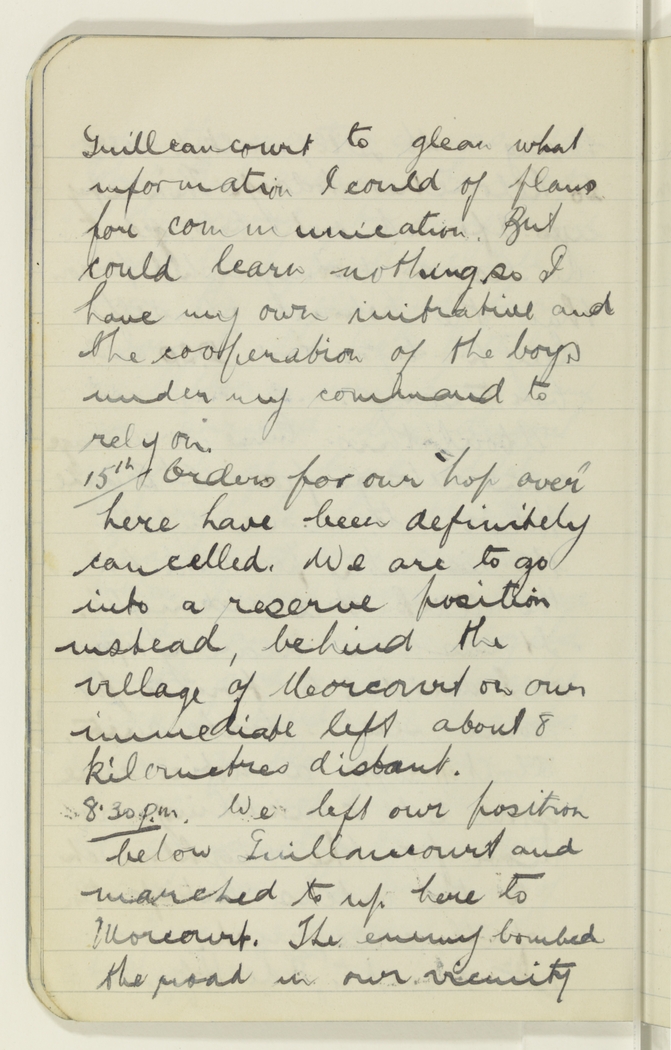 Guilleaucourt to glean what
information I could of plans
for communication. But
could learn nothing, so I
have my own initrative and
the cooperation of the boys
under my command to
rely on.
15th Orders for our "hop over"
here have been definitely
cancelled. We are to go
into a reserve position
instead, behind the
village of Morcourt on our
immediate left about 8
kilometres distant.
8.30 p.m. We left our position
below Guillaucourt and
marched to up here to
Morcourt. The enemy bombed
the road in our vicinity